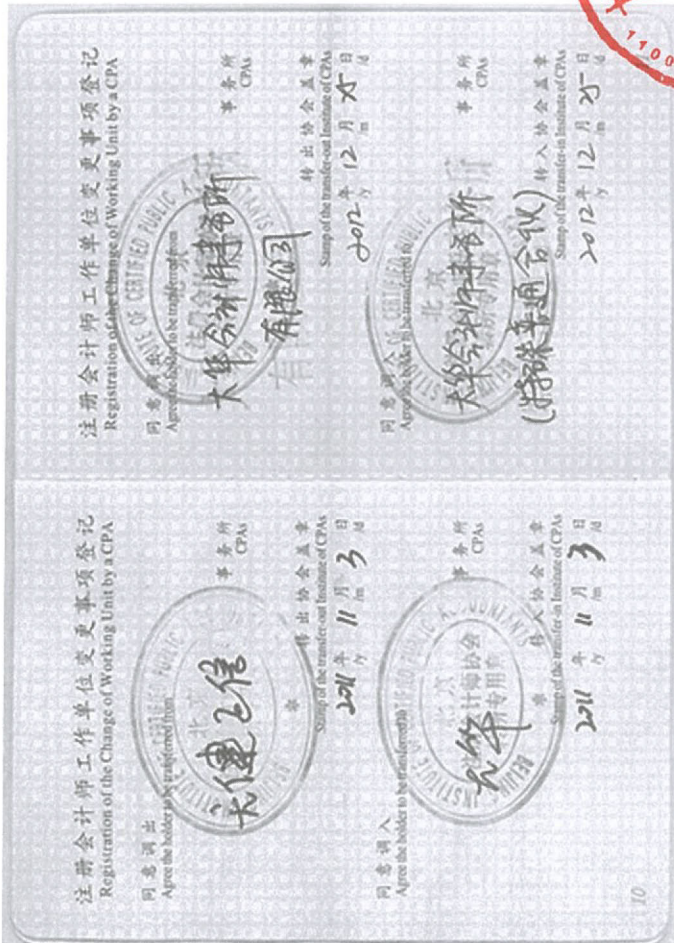 注册会计师工作单位变更事项登记
Registration of the Change of Working Unit by a CPA
同意调出
Agree the holder to be transferred from
天健正信
事务所
CPAs
转出协会盖章
Stamp of the transfer-out Institute of CPAs
2011 年 11 月 3 日
/y /m /d
同意调入
Agree the holder to be transferred to
大华
事务所
CPAs
转入协会盖章
Stamp of the transfer-in Institute of CPAs
2011 年 11 月 3 日
/y /m /d
10
注册会计师工作单位变更事项登记
Registration of the Change of Working Unit by a CPA
同意调出
Agree the holder to be transferred from
大华会计师事务所
有限公司
事务所
CPAs
转出协会盖章
Stamp of the transfer-out Institute of CPAs
2012 年 12 月 25 日
/y /m /d
同意调入
Agree the holder to be transferred to
大华会计师事务所
(特殊普通合伙)
事务所
CPAs
转入协会盖章
Stamp of the transfer-in Institute of CPAs
2012 年 12 月 25 日
/y /m /d
1100